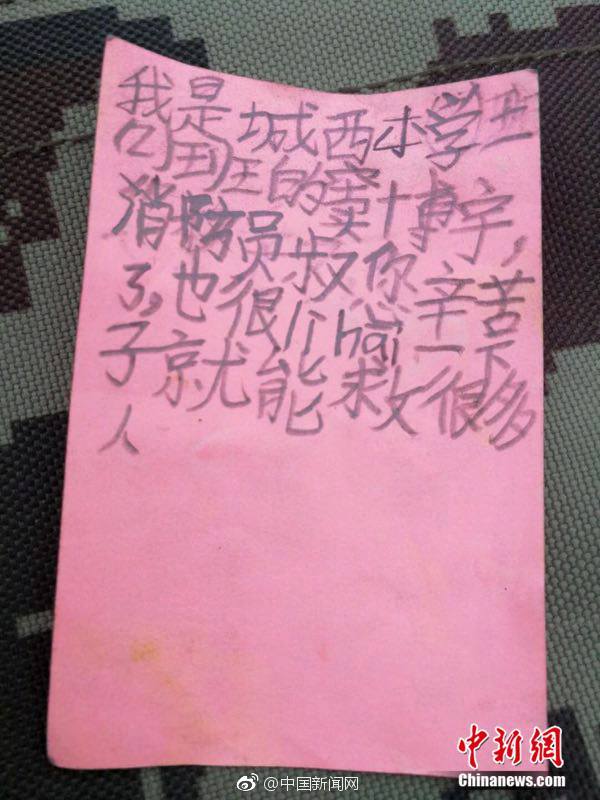 我是城西小学
班的窦博宇,
消防员叔您辛苦
了,也很厉hai一下
子就能救很多
人
@中国新闻网
中新网
Chinanews.com